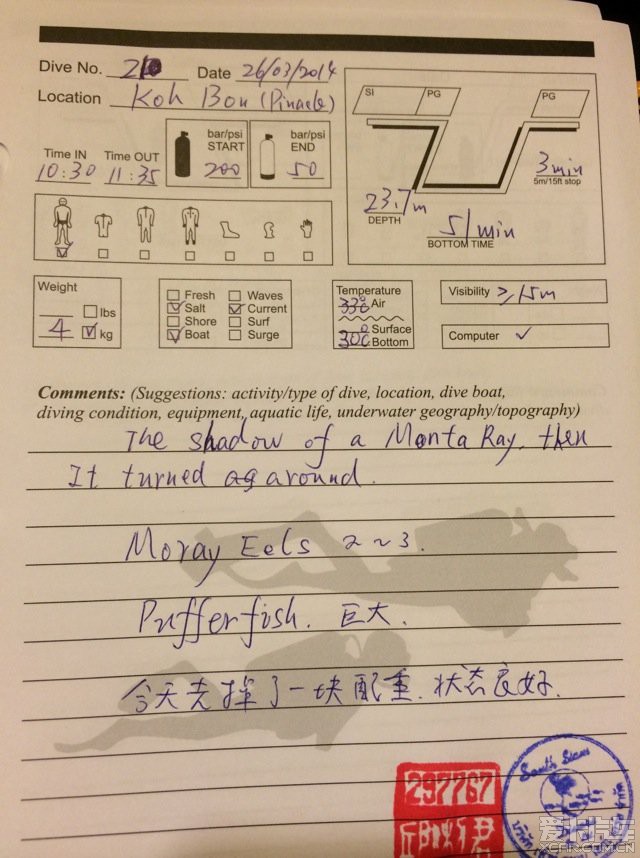 Dive No. Date 26/03/2014
Location Koh Bon (Pinacle)
SI PG PG
Time IN Time OUT
10:30 11:35
bar/psi START 200
bar/psi END 50
3min
5m/15ft stop
23.7m
DEPTH
51min
BOTTOM TIME
Weight
lbs
4 kg
Fresh Waves
Salt Current
Shore Surf
Boat Surge
Temperature
33° Air
Surface
30° Bottom
Visibility ≥15m
Computer ✓
Comments: (Suggestions: activity/type of dive, location, dive boat,
diving condition, equipment, aquatic life, underwater geography/topography)
The shadow of a Manta Ray, then
It turned around.
Moray Eels 2~3.
Pufferfish. 巨大.
今天去掉了一块配重.状态良好.
297767
South Siam
爱卡汽车
XCAR.COM.CN